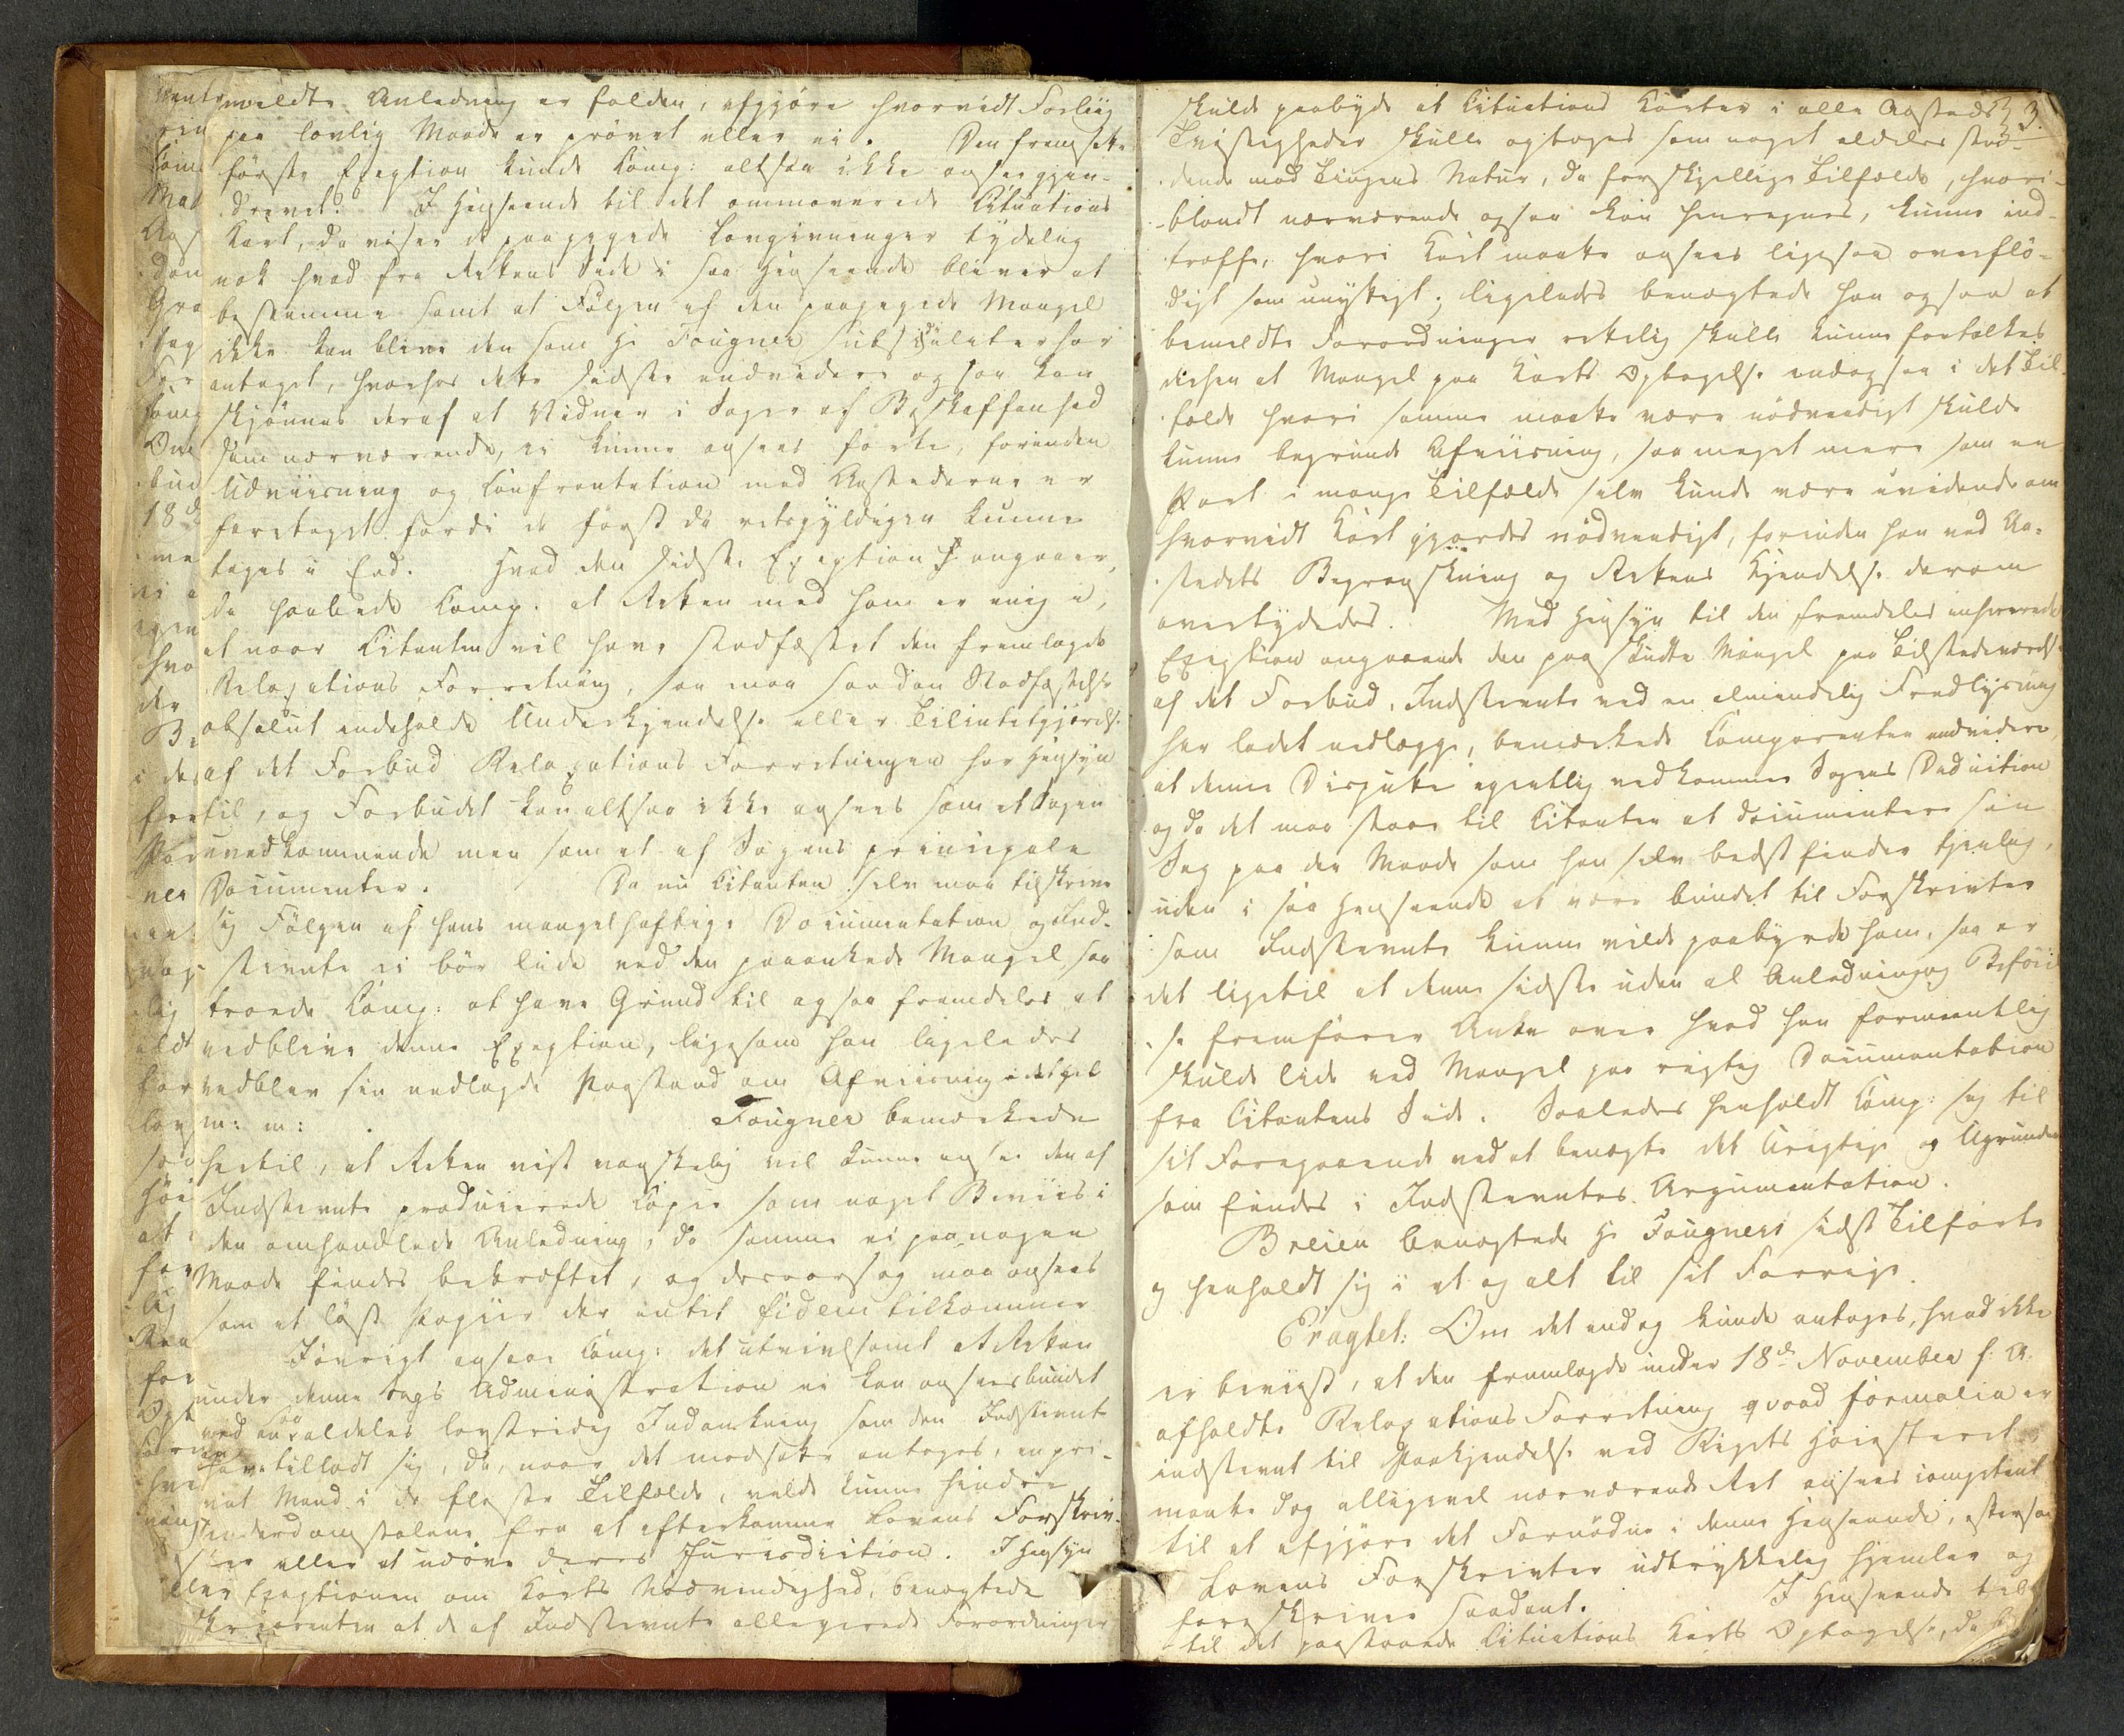 meldte Anledning er falden, afgjöre hvorvidt Forliig
paa lovlig Maade er prövet eller ei. Den fremsatte
förste Exeption kunde Comp: altsaa ikke ansee gjen-
drevet. I Henseende til det ommeverede Situations
Kart, da viser de paagegede Lovgivninger tydelig
nok hvad fra Rettens Side i saa Henseende bliver at
bestemme samt at Fölgen af den paagegede Mangel
ikke kan blive den som Hr Fougner subsidialiter har
antaget, hvorhos dette sidste endvidere ogsaa kan
skjönnes deraf at Vidner i Sager af Beskaffenhed
som nærværende, ei kunne ansees förte, forinden
Udviisning og Confrontation med Aastederne er
foretaget fordi de förft da retsgyldigen kunne
tages i Eed. Hvad den sidste Exeption angaaer,
da haabede Comp. at Retten med ham er enig i,
at naar Citanten vil have stadfæstet den fremlagde
Relaxations Forretning, saa maa saadan Stadfæstelse
absolut indeholde Underkjendelse eller Tilintetgjörelse
af det Forbud Relaxations Forretningen har Hensyn
til, og Forbudet kan altsaa ikke ansees som et Sagen
uvedkommende men som et af Sagens principale
Documenter. Da nu Citanten selv maa tilskrive
sig Fölgen af hans mangelhaftige Documentation og Ind-
stevnte ei bör liide ved den paaankede Mangel, saa
troede Comp: at have Grund til ogsaa fremdeles at
vedblive denne Exeption, ligesom han ligeledes
vedblev sin nedlagde Paastand om Afviisning i det hele
m: m: Fougner bemærkede
hertil, at Retten vist vanskelig vil kunne ansee den af
Indstevnte producerede Copie som noget Beviis i
den omhandlede Anledning, da samme ei paa nogen
Maade findes bekræftet, og desaarsag maa ansees
som et löst Papiir der intet fidem tilkommer
Jövrigt ansaae Comp: det utvivlsomt at Retten
under denne Sags Administration ei kan ansees bundet
ved en saa aldeles lovstridig Indankning som den Indstevnte
har tilladt sig, da, naar det modsatte antages, en pri-
vat Mand i de fleste Tilfælde, vilde kunne hindre
Underdomstolene fra at efterkomme Lovens Forskriv-
ter eller at udöve deres Jurisdiction. I Hensyn
til Exeptionen om Karts Nödvendighed, benægtede
Comparenten at de af Indstevnte allegerede Forordninger
3.
skulde paabyde at Situations Karter i alle Aasteds
Tvistigheder skulle optages som noget aldeles stri-
dende mod Tingens Natur, da forskjellige Tilfælde, hvori-
blandt nærværende ogsaa kan henregnes, kunne ind-
træffe, hvori Kart maatte ansees ligesaa overflö-
digt som unyttigt; ligeledes benægtede han ogsaa at
bemeldte Forordninger rettelig skulle kunne fortolkes
derhen at Mangel paa Karts Optagelse endogsaa i det Til-
fælde hvori samme maatte være nödvendigt skulde
kunne begrunde Afviisning, saa meget mere som en
Part i mange Tilfælde selv kunde være uvidende om
hvorvidt Kart gjordes nödvendigt, forinden han ved Aa-
stedets Begranskning og Rettens Kjendelse derom
overtydedes. Med Hensyn til den fremdeles
Exeption angaaende den paaskudte Mangel paa Tilstedeværelse
af det Forbud, Indstevnte ved en almindelig Fredlysning
har ladet nedlægge, bemærkede Comparenten endvidere,
at denne Dispute egentlig vedkommer Sagens Deduction
og da det maa staae til Citanten at documentere sin
Sag paa den Maade som han selv bedst finder tjenlig,
uden i saa Henseende at være bundet til Forskrivter
som Indstevnte kunne vilde paabyrde ham, saa er
det ligetil at denne sidste uden al Anledning og Beföi-
else fremförer Anke over hvad han formeentlig
skulde lide ved Mangel paa rigtig Documentation
fra Citantens Side. Saaledes henholdt Comp: sig til
sit Foregaaende ved at benægte det Urigtige og Ugrundede
som findes i Indstevntes Argumentation.
Breien benægtede Hr Fougners sidst Tilförte
og henholdt sig i et og alt til sit Forrige.
Eragtet: Om det endog kunde antages, hvad ikke
er beviist, at den fremlagde under 18de November f: A.
afholdte Relaxations Forretning qvoad formalia er
indstevnt til Paakjendelse ved Rigets Höiesteret,
maatte dog alligevel nærværende Ret ansees competent
til at afgjöre det Fornödne i denne Henseende, eftersom
Lovens Forskrivter udtrykkelig hjemler og
foreskriver saadant. I Henseende til
til det paastaaede Situations Karts Optagelse, da